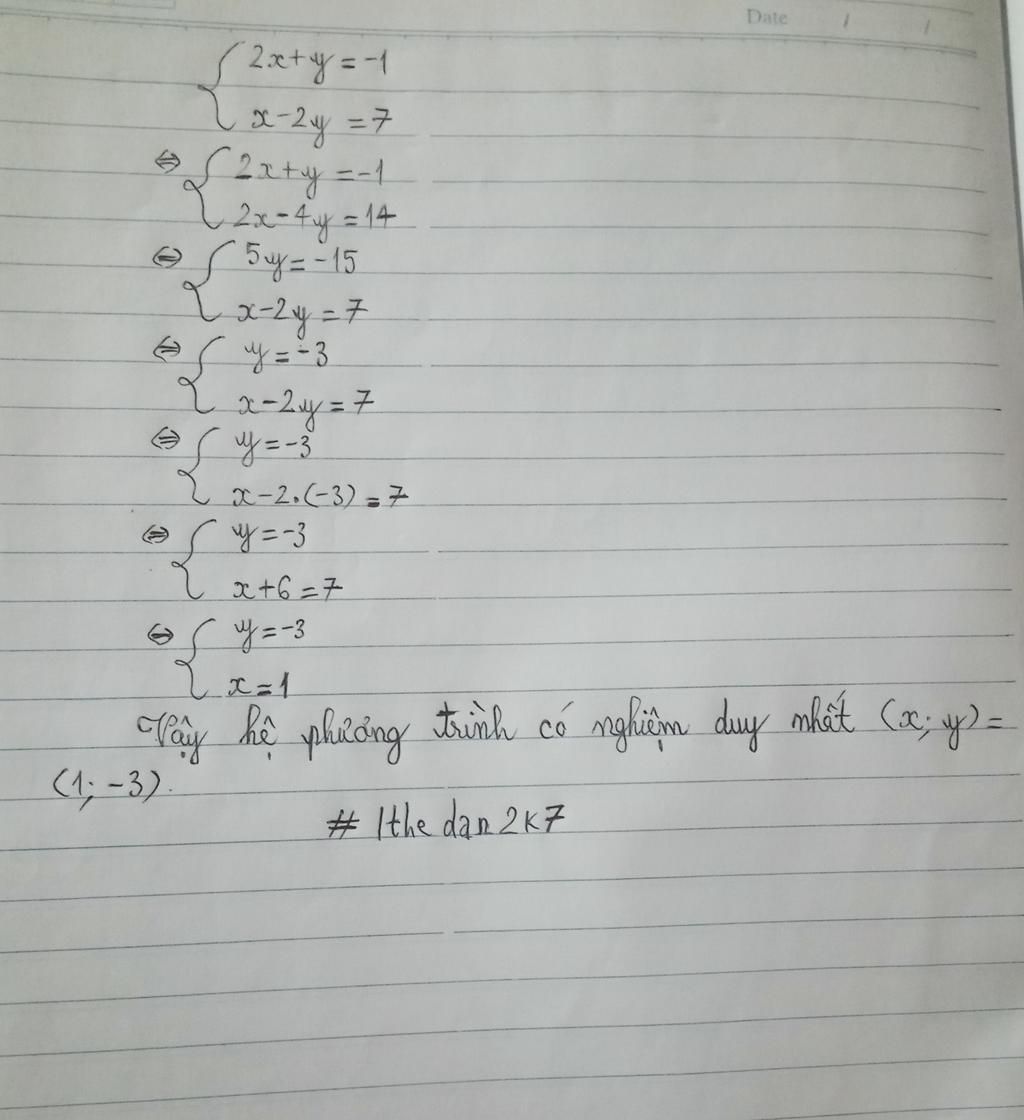 Date / /
2x+y=-1
x-2y=7
⇔ 2x+y=-1
2x-4y=14
⇔ 5y=-15
x-2y=7
⇔ y=-3
x-2y=7
⇔ y=-3
x-2.(-3)=7
⇔ y=-3
x+6=7
⇔ y=-3
x=1
Vậy hệ phương trình có nghiệm duy nhất (x; y)=
(1; -3).
# |the dan 2k7